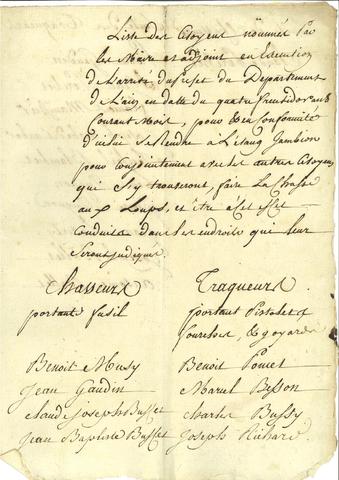 Liste des Citoyens nommés Par
les Maire et adjoint en Execution
de L'arreté du Prefet du Departement
de L'ain en datte du quatre fructidor
Courant Mois, pour En Conformité
d'icelui se Rendre a L'etang Jambion
pour Conjointement avec les autres Citoyens
qui s'y trouveront, faire La Chasse
aux Loups, et être a Cet effet
Conduits dans les endroits qui leur
seront indiqués
Chasseurs
portants fusil
Benoit Musy
Jean Gaudin
Claude Joseph Buffet
Jean Baptiste Buffet
Traqueurs
portant Pistolet et
fourches, & goyards
Benoit Poncet
Marcel Besson
Charles Bussy
Joseph Richard